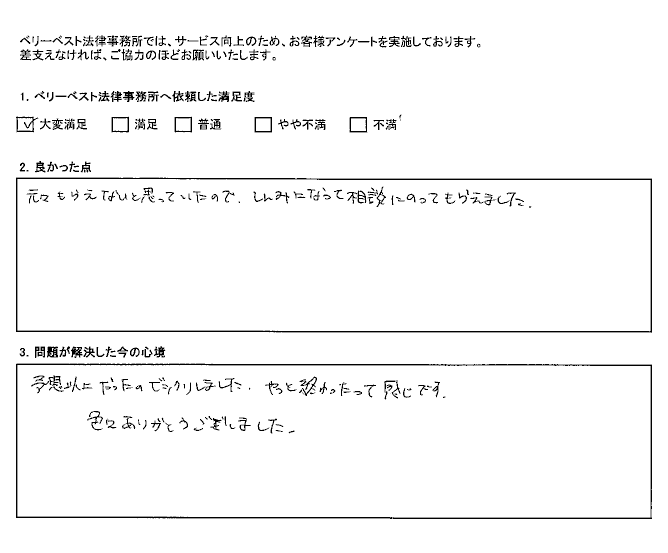 ベリーベスト法律事務所では、サービス向上のため、お客様アンケートを実施しております。
差支えなければ、ご協力のほどお願いいたします。
1. ベリーベスト法律事務所へ依頼した満足度
☑大変満足 □満足 □普通 □やや不満 □不満
2. 良かった点
元々もらえないと思っていたので、しんみになって相談にのってもらえました。
3. 問題が解決した今の心境
予想以上だったのでビックリしました。やっと終わったって感じです。
色々ありがとうございました。